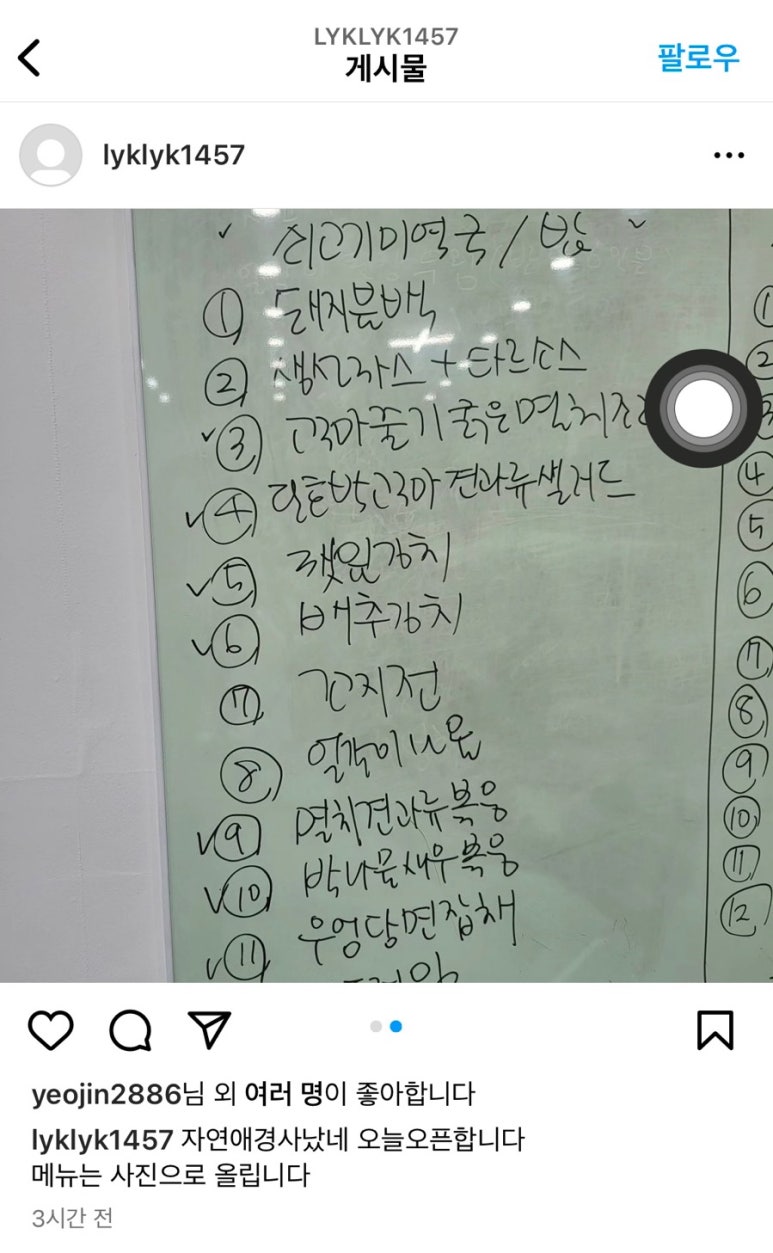 LYKLYK1457
게시물
팔로우
lyklyk1457
쇠고기미역국 / 밥
① 돼지불백
② 생선까스 +타르소스
③ 고구마줄기굵은멸치조
④ 단호박고구마견과류샐러드
⑤ 깻잎김치
⑥ 배추김치
⑦ 꼬지전
⑧ 얼갈이나물
⑨ 멸치견과류볶음
⑩ 박나물새우볶음
⑪ 우엉당면잡채
①
②
④
⑤
⑥
⑦
⑧
⑨
⑩
⑪
⑫
yeojin2886님 외 여러 명이 좋아합니다
lyklyk1457 자연애경사났네 오늘오픈합니다
메뉴는 사진으로 올립니다
3시간 전